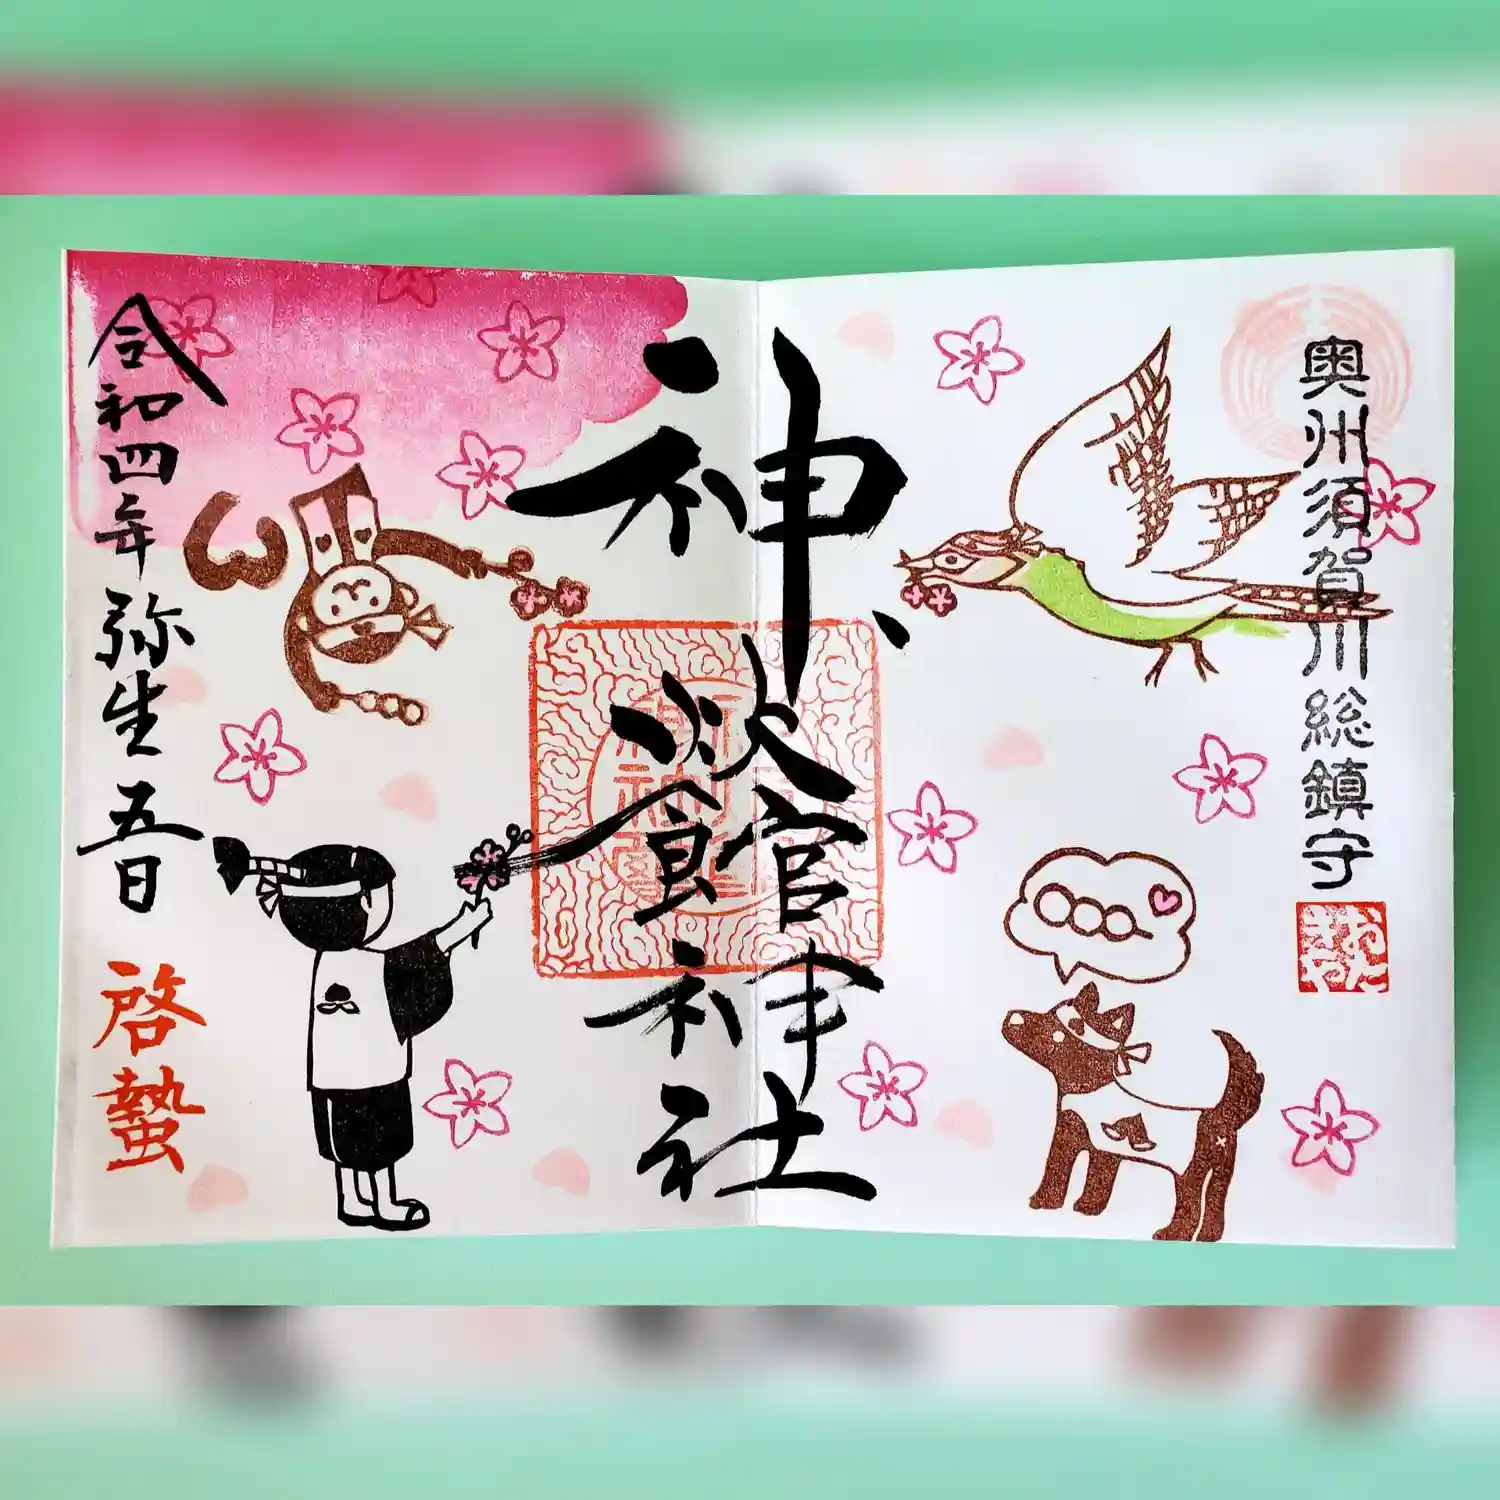 奥州須賀川総鎮守
おたきや
神炊館神社
令和四年弥生五日
啓蟄